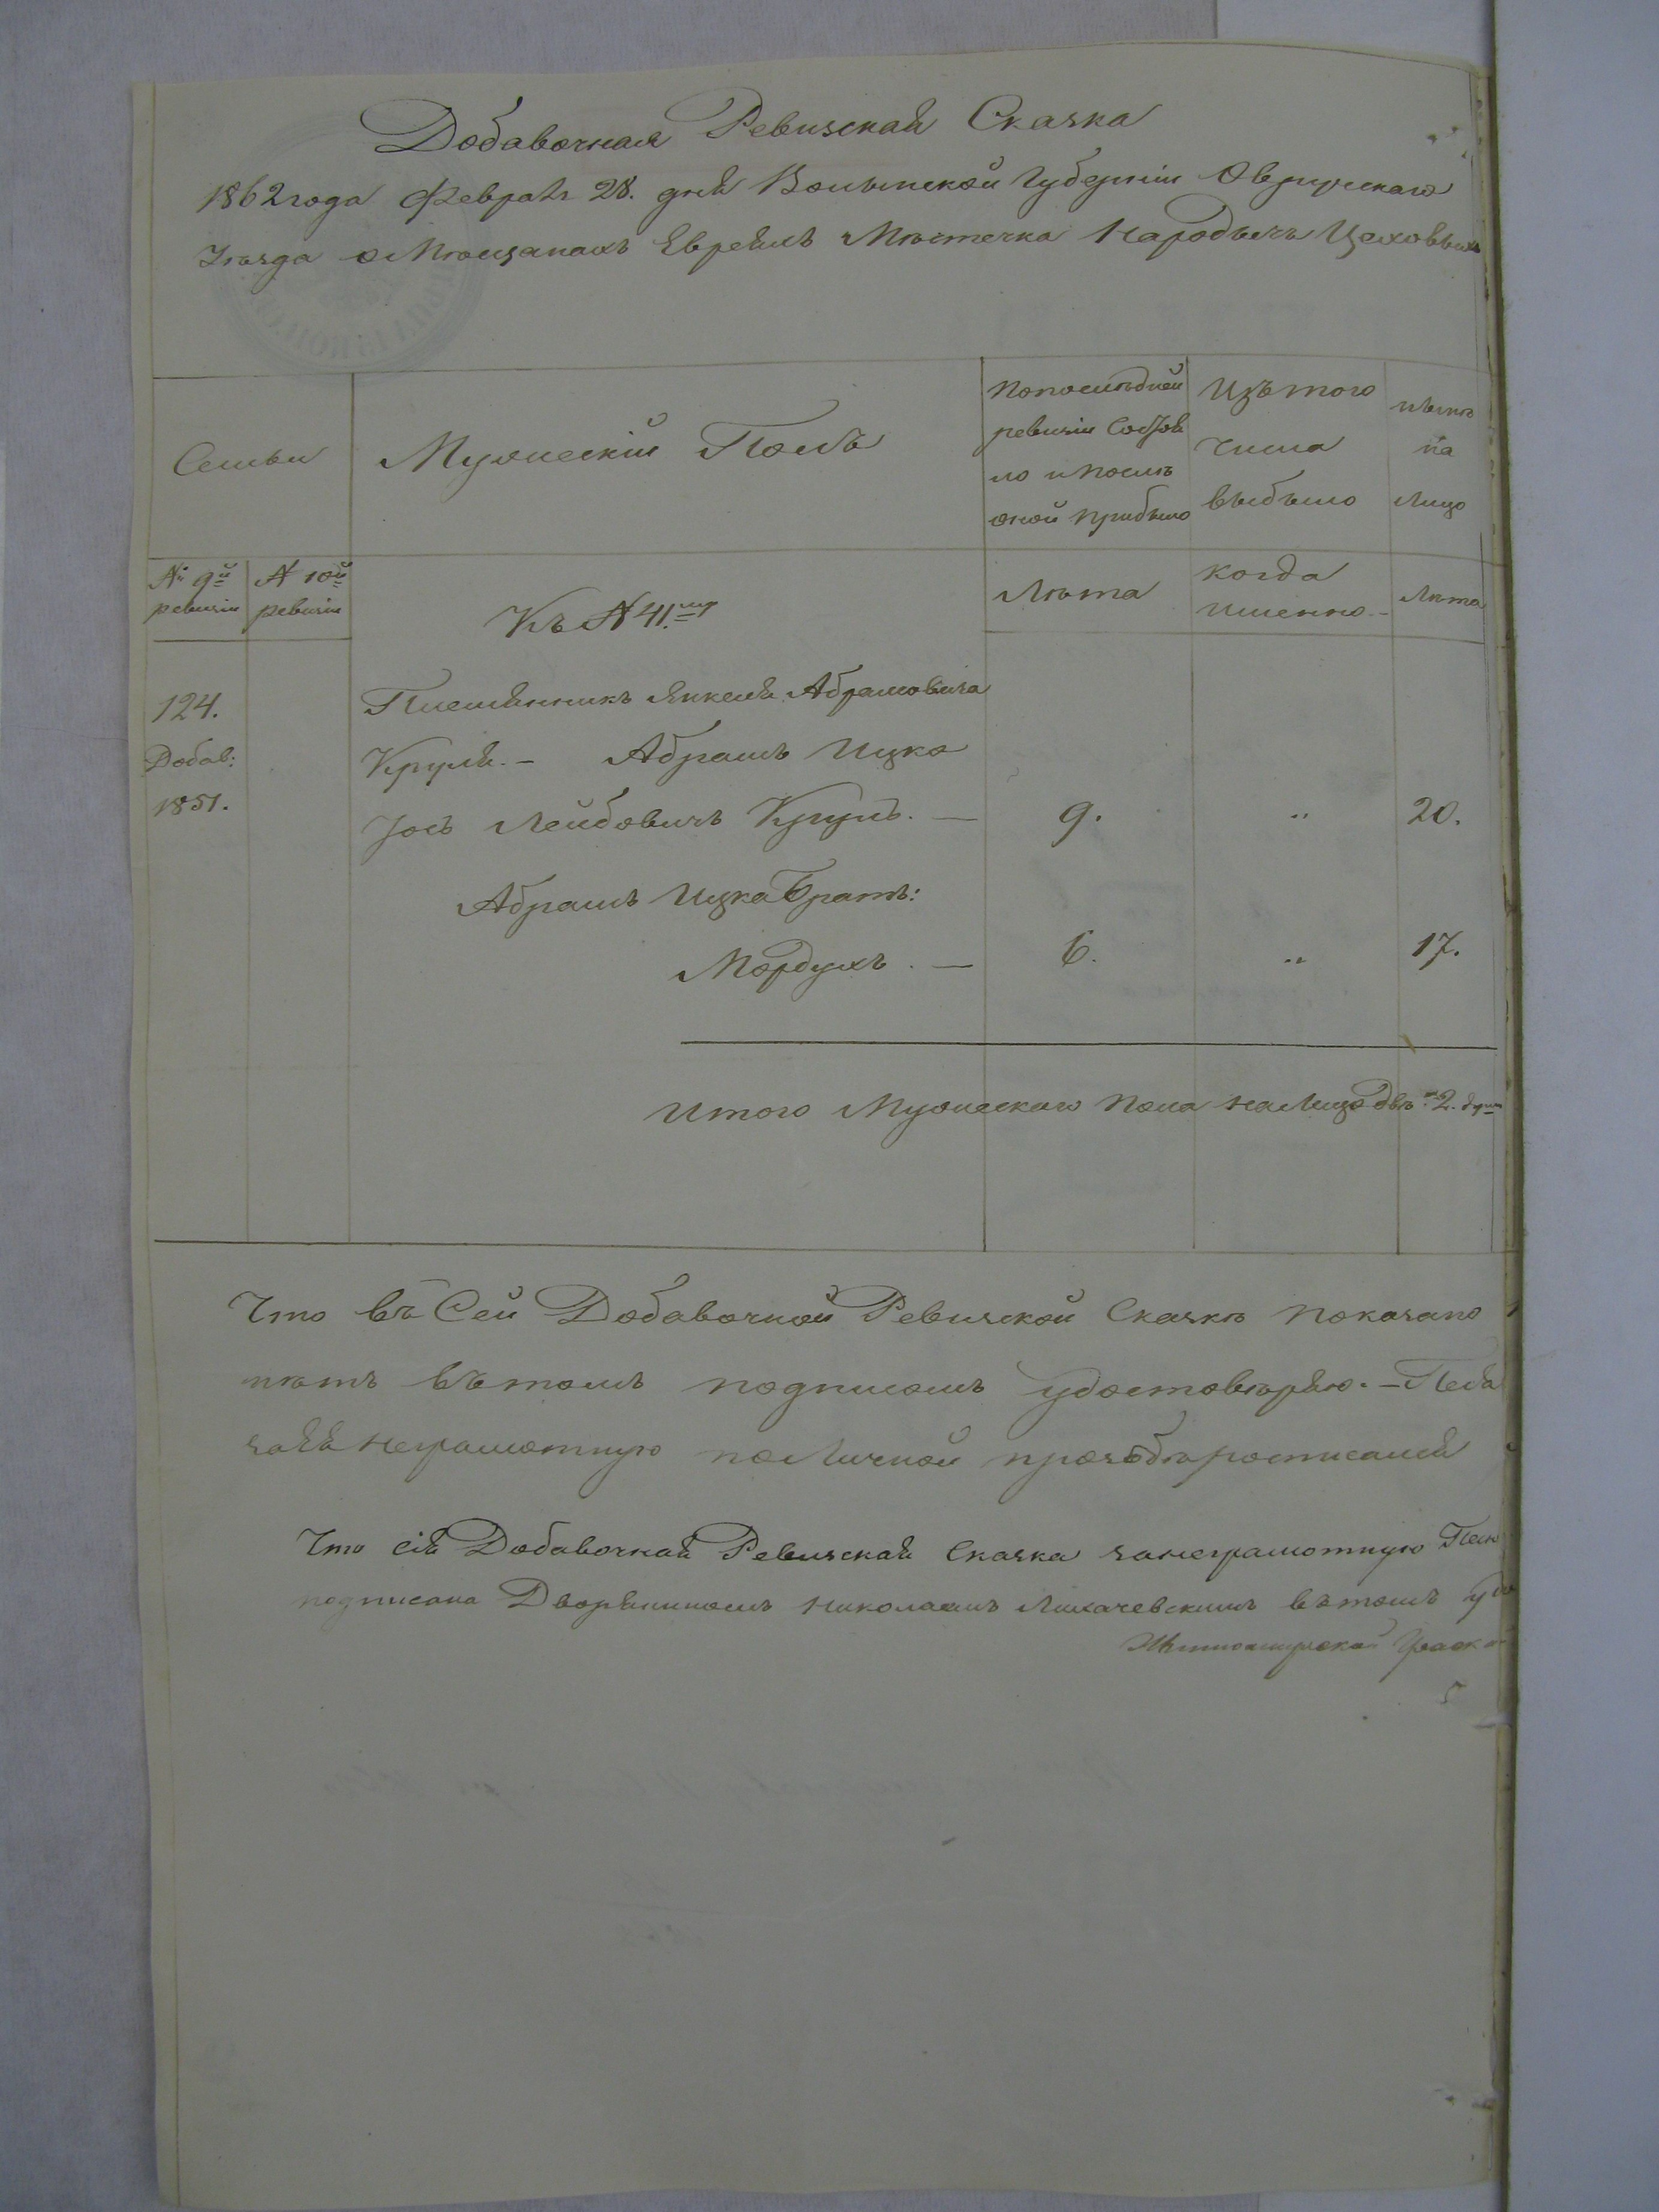 Добавочная Ревизская Сказка
1862 года Февраля 28. дня Волынской Губерніи Овручскаго
Уѣзда о Мѣщанахъ Евреяхъ Мѣстечка Народычъ Цеховыхъ
Семьи
Мужескій Полъ
По последней
ревизіи состоя
ло и послѣ
оной прибыло
Изъ того
числа
выбыло
нынѣ
на
лицо
№ 9й ревизіи
№ 10й ревизіи
Къ № 41.му
Лѣта
когда
именно
Лѣта
124.
Добав:
1851.
Племянникъ Янкеля Абрамовича
Круля. — Абрамъ Ицко
Іось Лейбовичъ Круль. — 9. " 20.
Абрамъ Ицка Братъ:
Мордухъ. — 6. " 17.
Итого Мужескаго пола на лицо двѣ 2. душ
Что въ Сей Добавочной Ревизской Сказкѣ показано
лѣтъ въ томъ подписомъ удостовѣряю. —
неграмотную по личной прозьбѣ росписался
Что сія Добавочная Ревизская Сказка за неграмотную
подписана Дворяниномъ Николаемъ Лихачевскимъ въ томъ